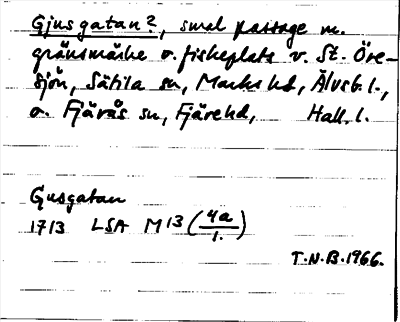 Gjusgatan?, smal passage m.
gränsmärke o. fiskeplats v. St. Öre-
sjön, Sätila sn, Marks hd, Älvsb. l.,
o. Fjärås sn, Fjäre hd, Hall. l.
Gusgatan
1713 LSA M13 (4a/1.)
T.N.B. 1966.